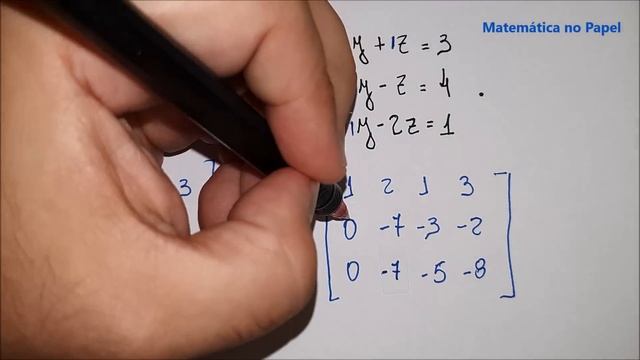 Matemática no Papel
y + 1z = 3
y - z = 4 .
1y - 2z = 1
3
1 2 1 3
0 -7 -3 -2
0 -7 -5 -8